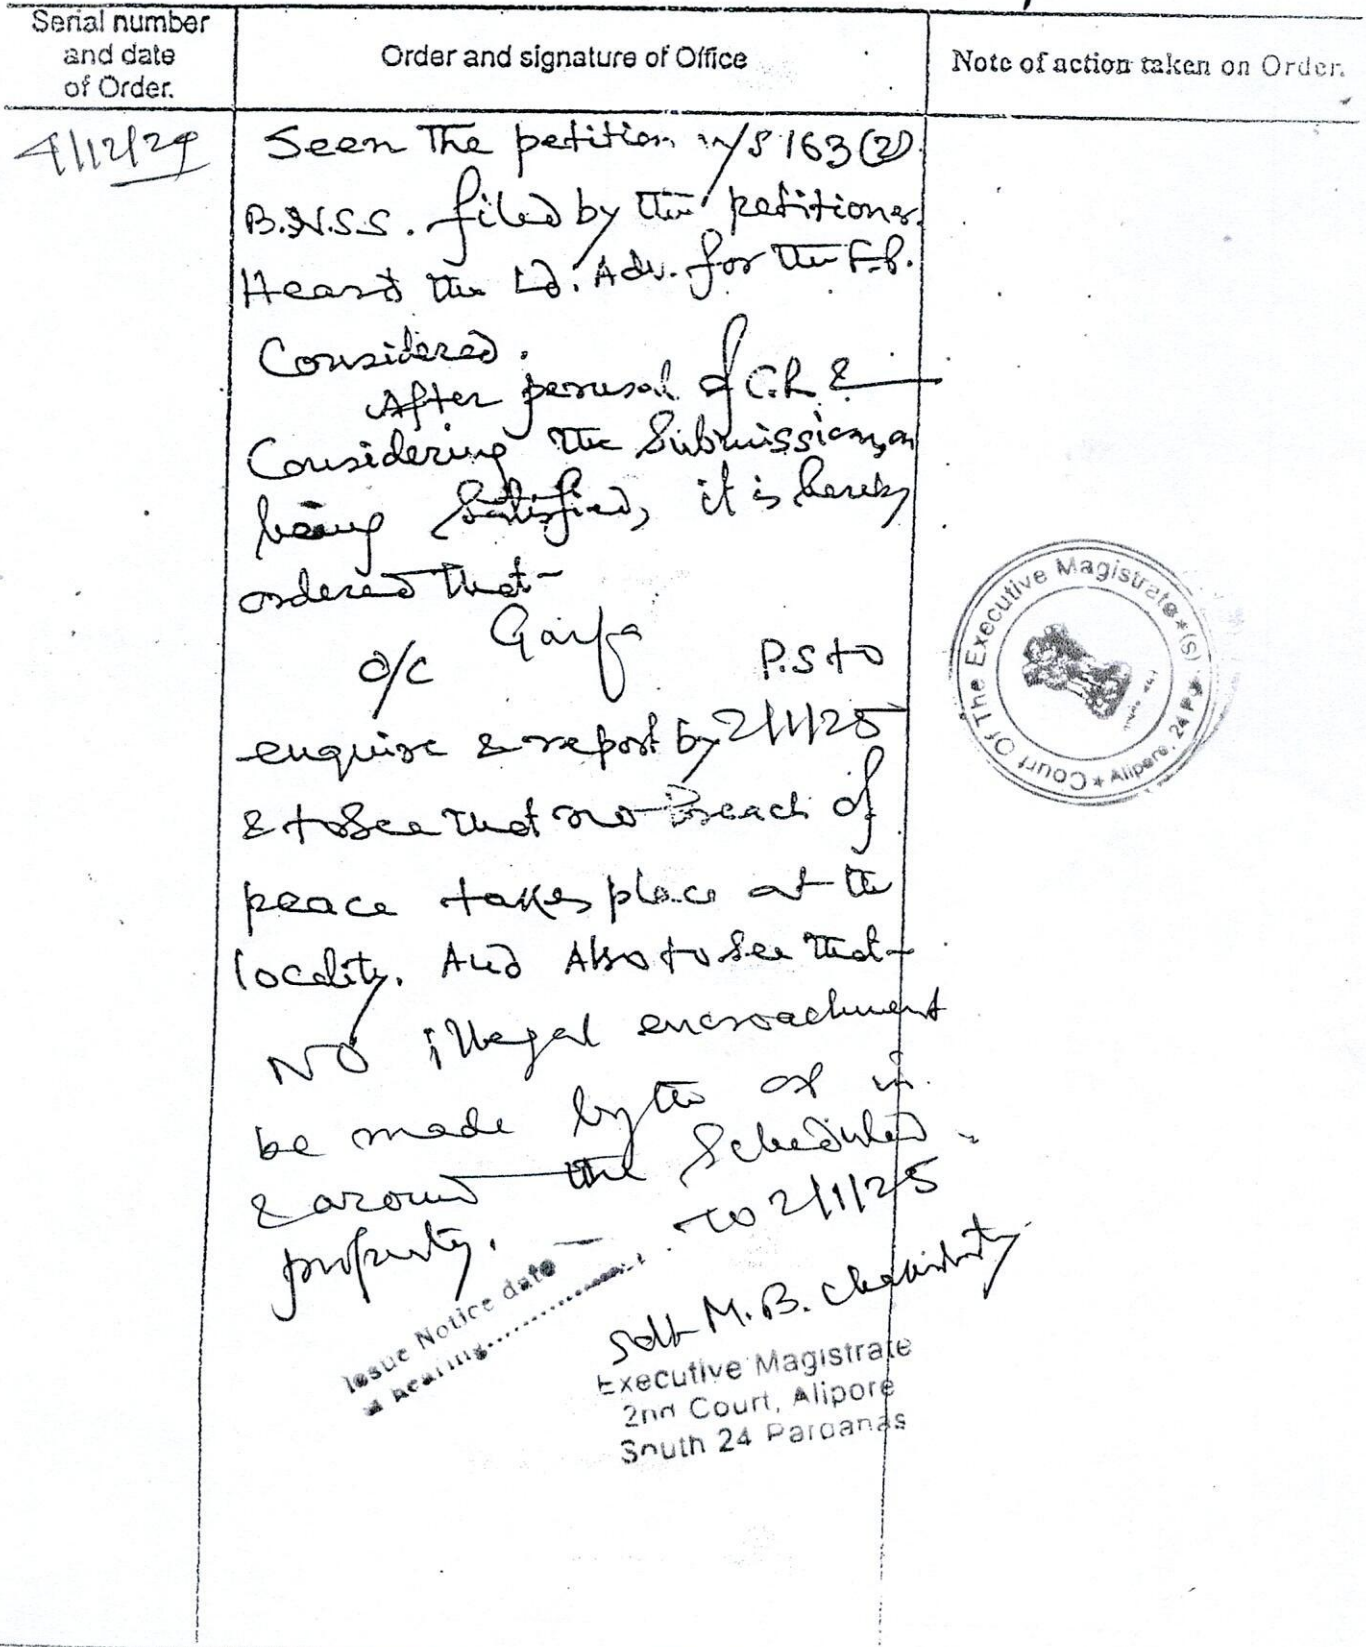 Serial number
and date
of Order.
Order and signature of Office
Note of action taken on Order.
4/12/24
Seen The petition u/S 163(2)
B.N.S.S. filed by the petitioner.
Heard the Ld. Adv. for the F.P.
Considered.
After perusal of C.R &
Considering the Submission, on
being Satisfied, it is hereby
ordered that-
O/C Garfa P.S to
enquire & report by 2/1/25
& to See that no Breach of
peace takes place at the
locality. And Also to See that-
NO illegal encroachment
be made by the OP in
& around the Scheduled
property.
Issue Notice date
hearing............ To 2/1/25
Sd/- M.B. Chakraborty
Executive Magistrate
2nd Court, Alipore
South 24 Parganas
Court Of The Executive Magistrate * (S) 24 Pgs * Alipore